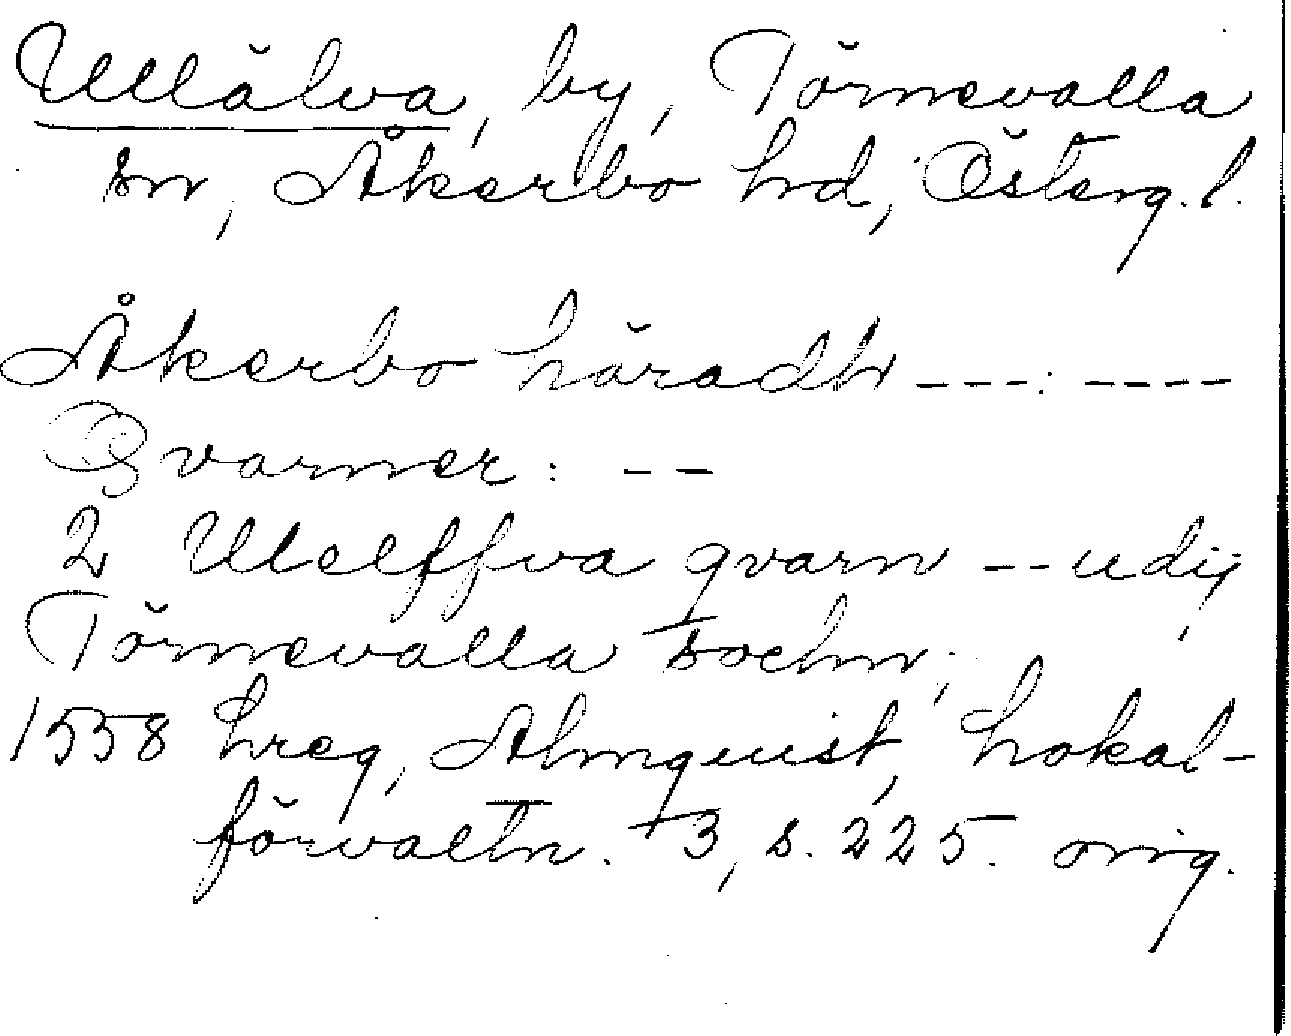 Ullälva, by, Törnevalla
sn, Åkerbo hd, Österg. l.
Åkerbo häradh ---:----
Qvarner: --
2 Ulelffva qvarn -- udij
Törnevalla sochn,
1558 hreg, Almquist, Lokal-
förvaltn. 3, s. 225. orig.